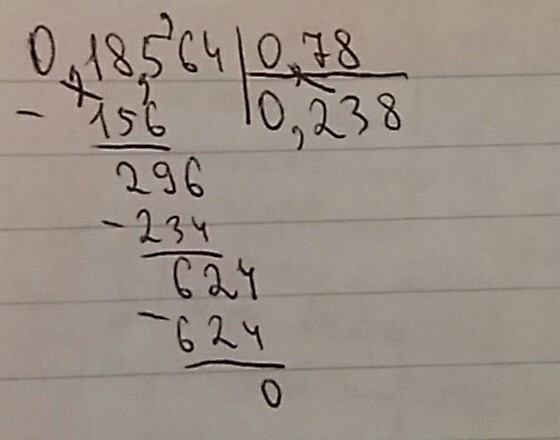 0,18564 | 0,78
- 156 | 0,238
296
- 234
624
- 624
0